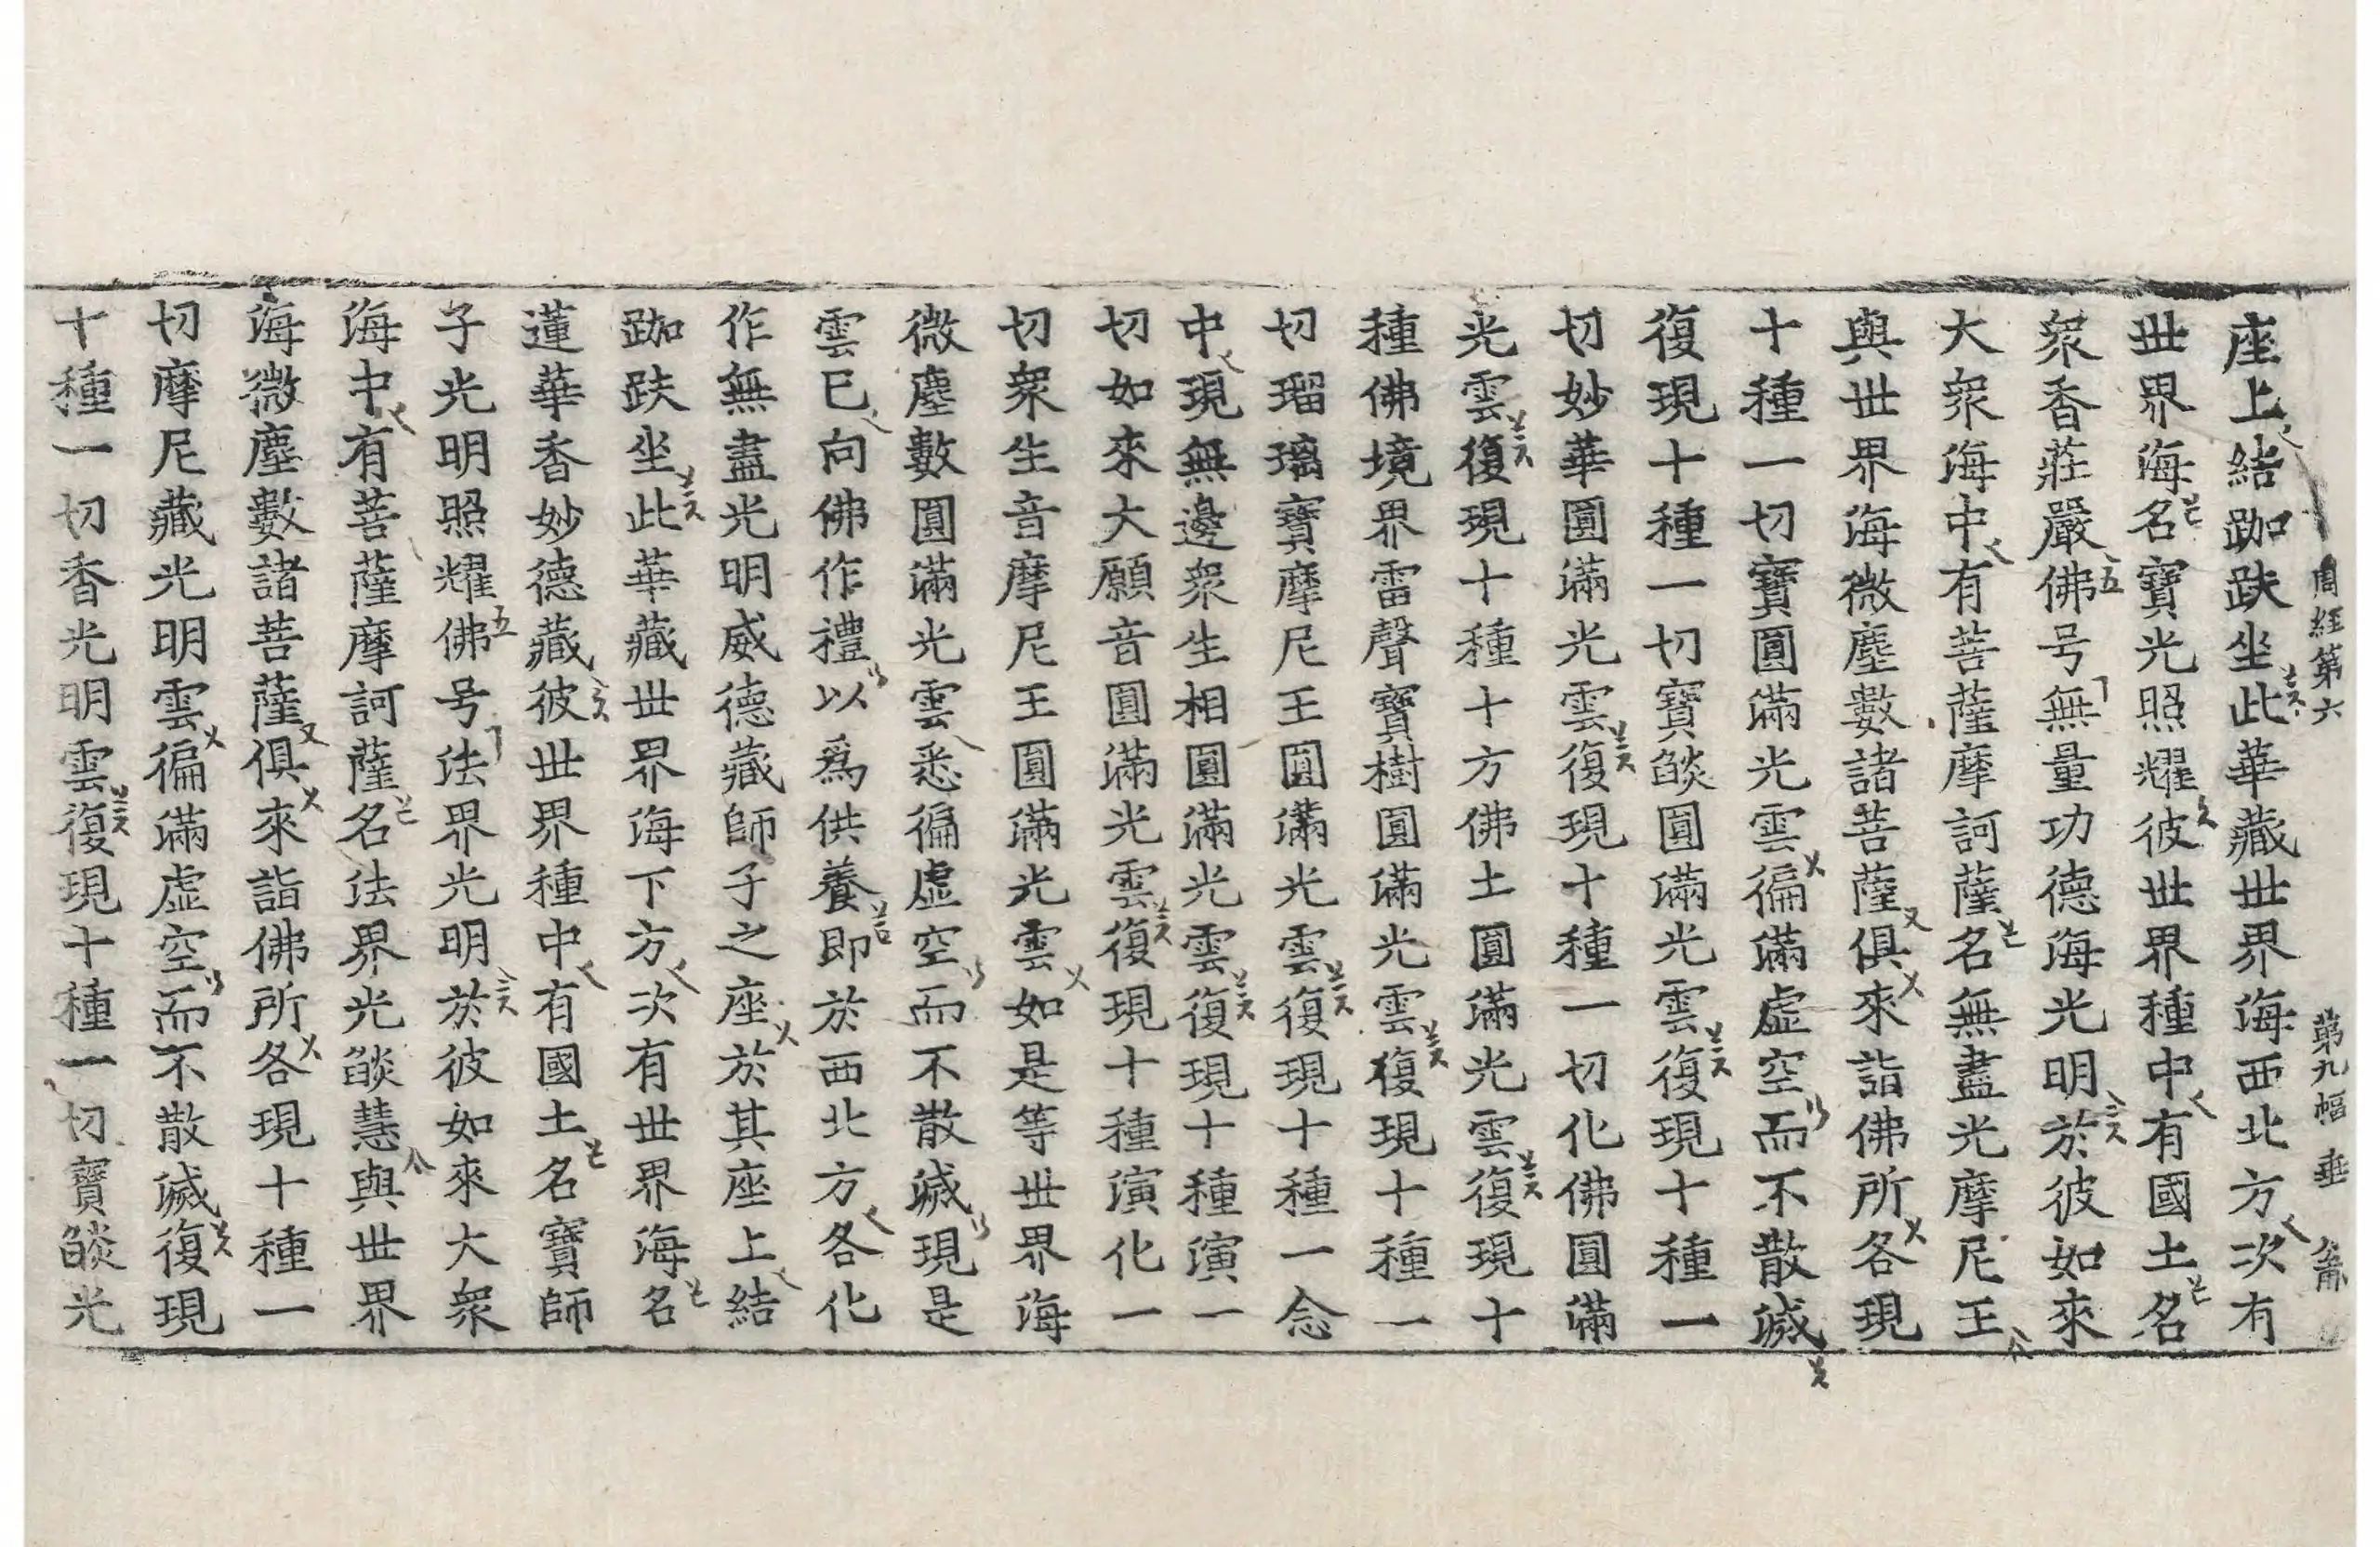 周経第六 第九幅 垂
座上結跏趺坐此華藏世界海西北方次有
世界海名寶光照耀彼世界種中有國土名
衆香莊嚴佛号無量功德海光明於彼如來
大衆海中有菩薩摩訶薩名無盡光摩尼王
與世界海微塵數諸菩薩俱來詣佛所各現
十種一切寶圓滿光雲徧滿虛空而不散滅
復現十種一切寶燄圓滿光雲復現十種一
切妙華圓滿光雲復現十種一切化佛圓滿
光雲復現十種十方佛土圓滿光雲復現十
種佛境界雷聲寶樹圓滿光雲復現十種一
切瑠璃寶摩尼王圓滿光雲復現十種一念
中現無邊衆生相圓滿光雲復現十種演一
切如來大願音圓滿光雲復現十種演化一
切衆生音摩尼王圓滿光雲如是等世界海
微塵數圓滿光雲悉徧虛空而不散滅現是
雲已向佛作禮以爲供養即於西北方各化
作無盡光明威德藏師子之座於其座上結
跏趺坐此華藏世界海下方次有世界海名
蓮華香妙德藏彼世界種中有國土名寶師
子光明照耀佛号法界光明於彼如來大衆
海中有菩薩摩訶薩名法界光燄慧與世界
海微塵數諸菩薩俱來詣佛所各現十種一
切摩尼藏光明雲徧滿虛空而不散滅復現
十種一切香光明雲復現十種一切寶燄光